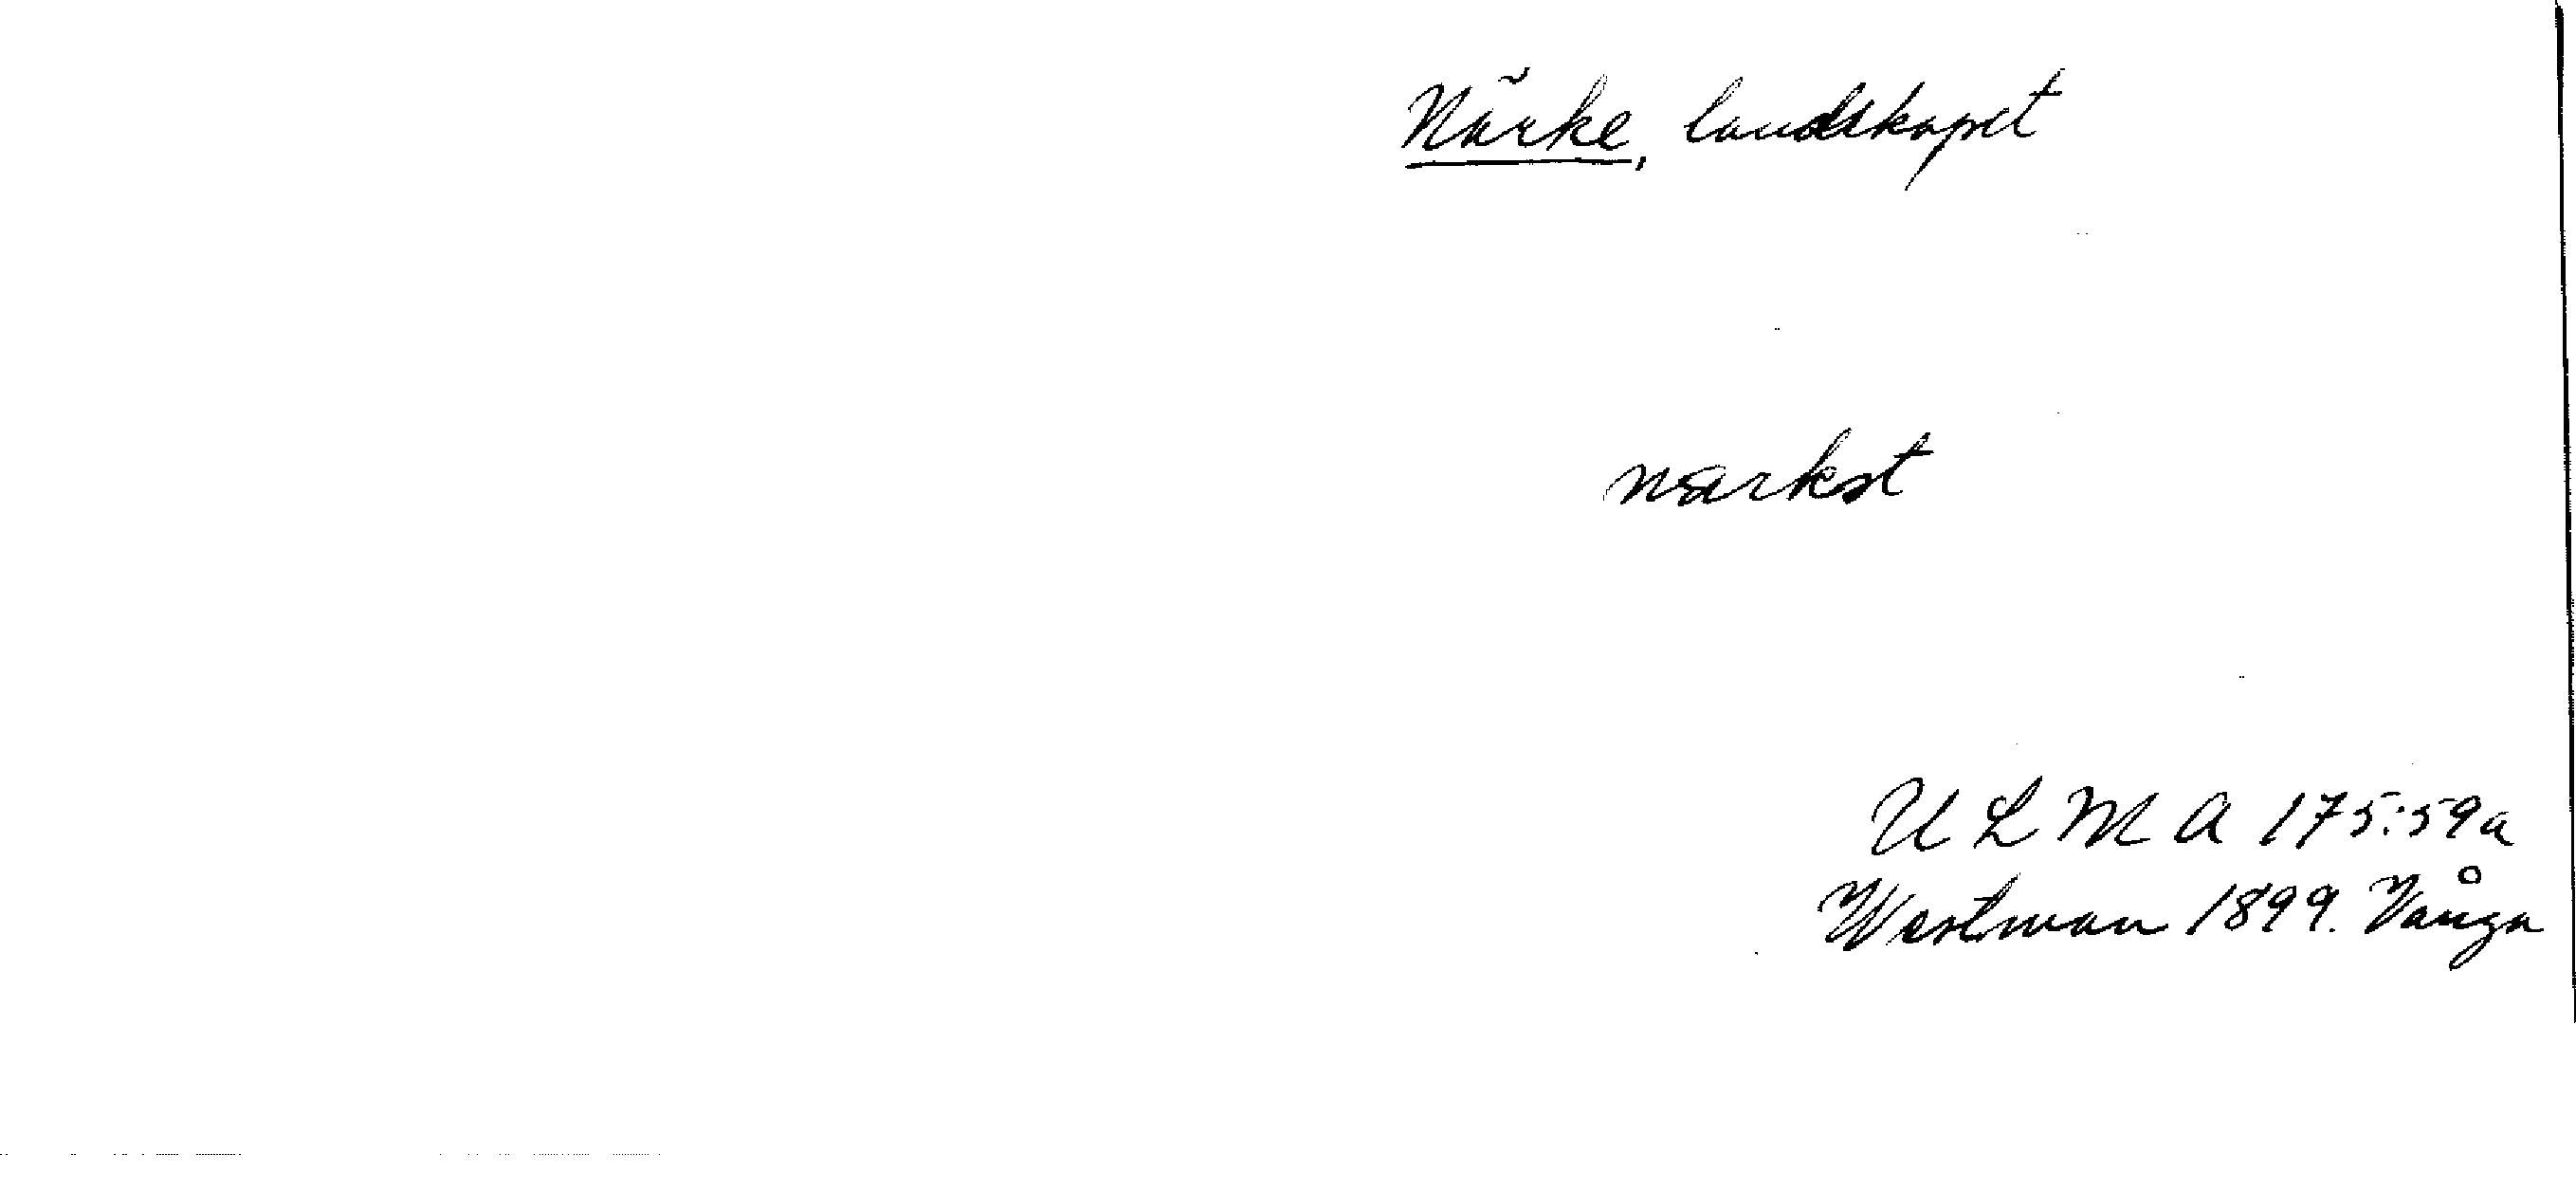 Närke, landskapet
närkst
U L M A 175:59a
Westman 1899. Vånga